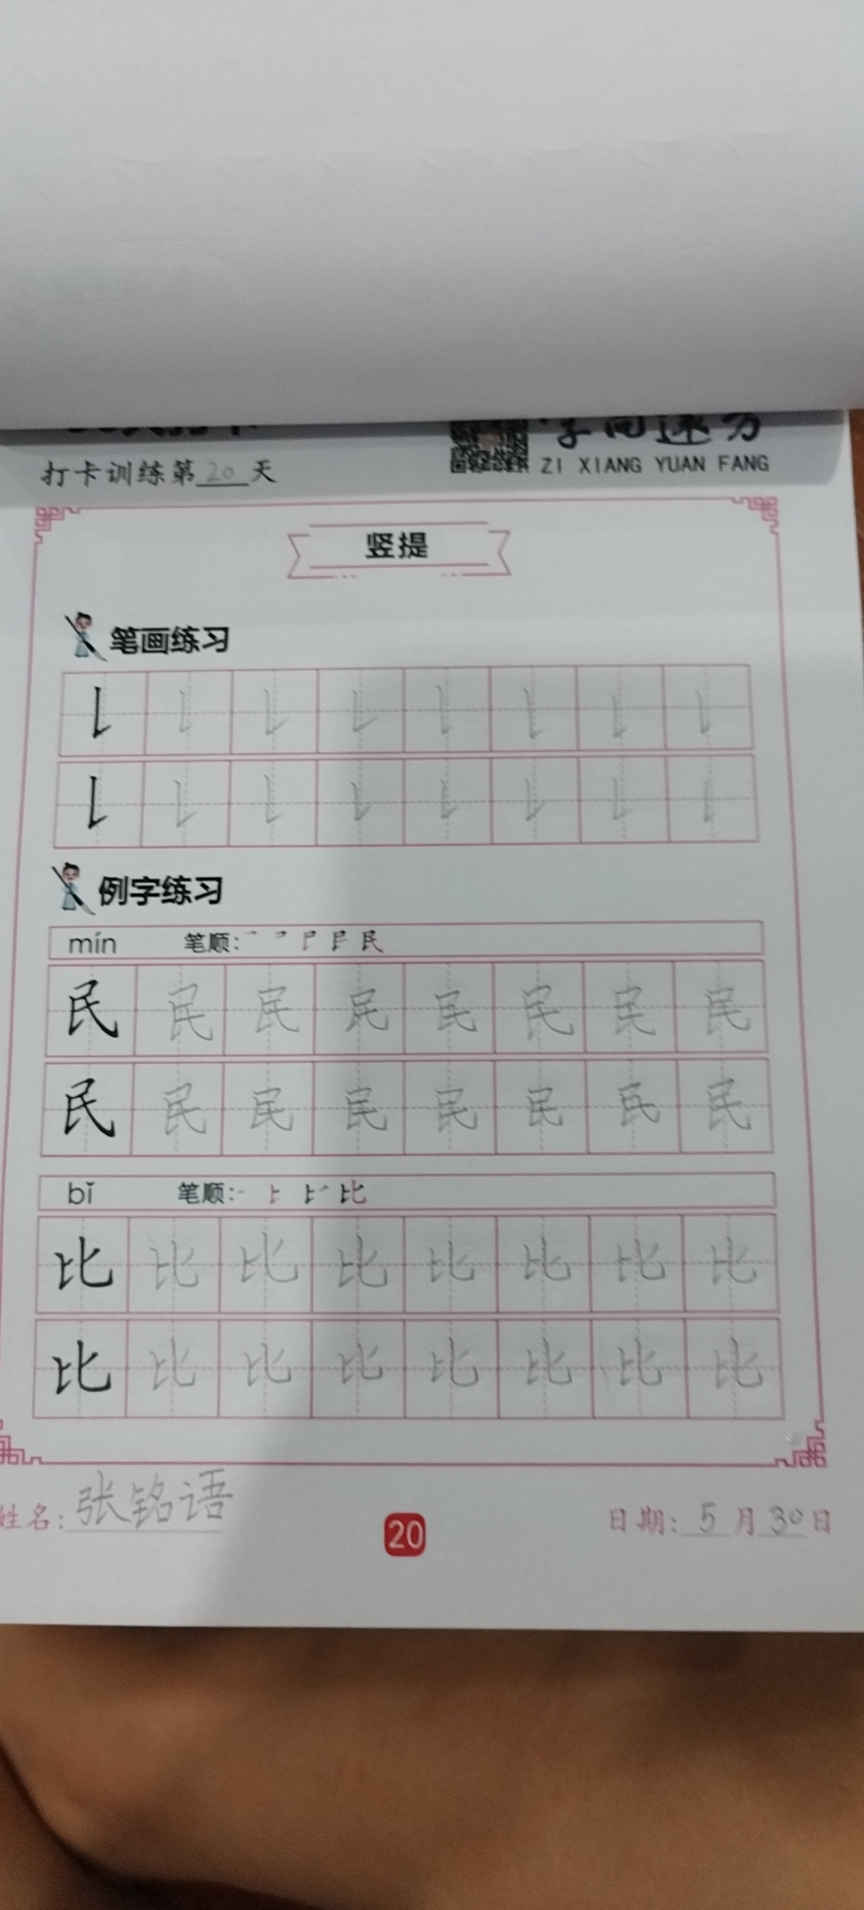 ZI XIANG YUAN FANG
打卡训练第20天
竖提
笔画练习
例字练习
mín 笔顺: 民
民 民 民 民 民 民 民 民
民 民 民 民 民 民 民 民
bǐ 笔顺: 比
比 比 比 比 比 比 比 比
比 比 比 比 比 比 比 比
姓名: 张铭语
20
日期: 5月30日